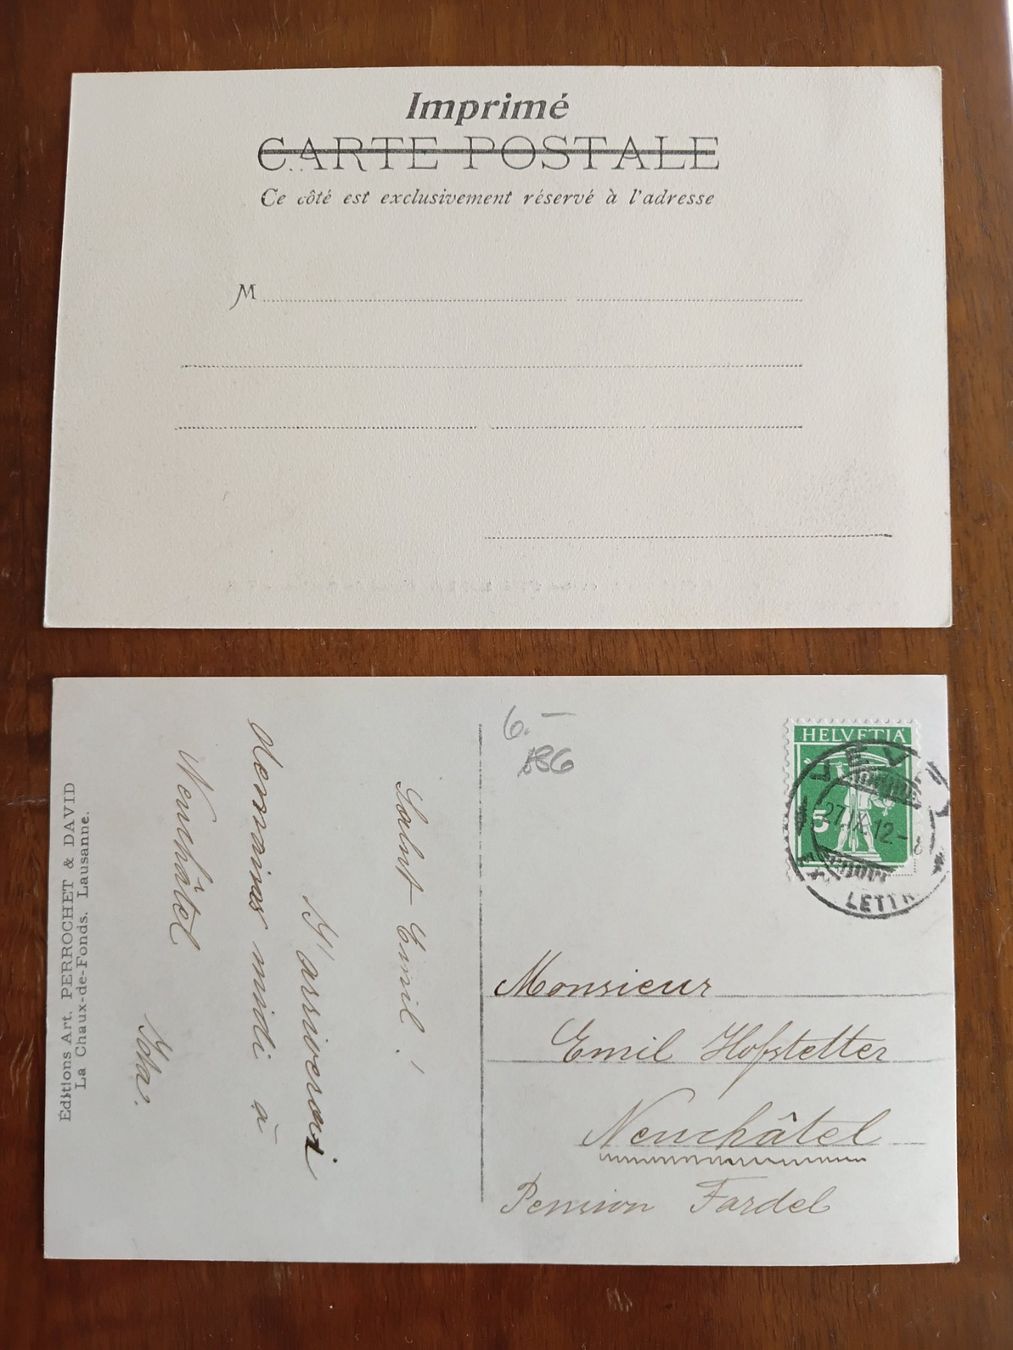 Imprimé
CARTE POSTALE
Ce côté est exclusivement réservé à l'adresse
M
Éditions Art. PERROCHET & DAVID
La Chaux-de-Fonds. Lausanne.
Salut Emil!
J'arriverai
midi à
Neuchâtel
6.—
186
HELVETIA
5
VEVEY
27.IX.12-8
LETTR
Monsieur
Emil Hofstetter
Neuchâtel
Pension Fardel